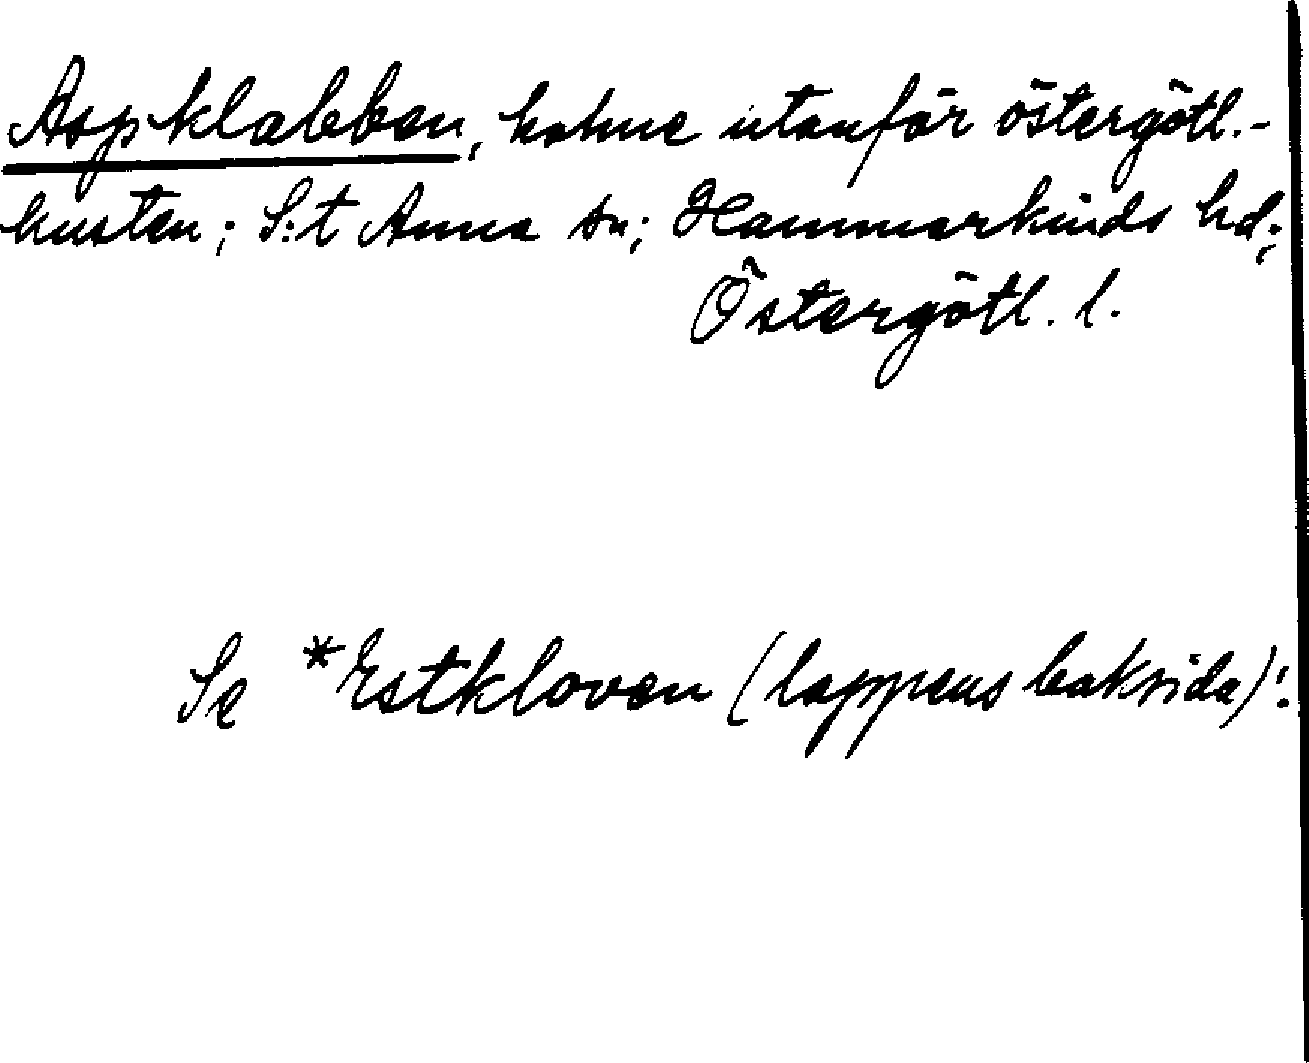 Aspklabben, holme utanför östergötl.-
kusten; S:t Anna sn; Hammarkinds hd;
Östergötl. l.
Se *Estkloven (lappens baksida)!